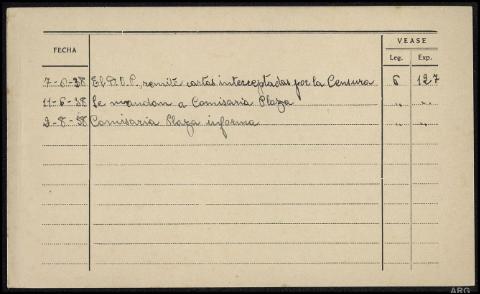 VEASE
FECHA Leg. Exp.
7-6-38 El D.O.P. remite cartas interceptadas por la Censura 6 127
11-6-38 Se mandan a Comisaria Plaza " "
2-8-38 Comisaria Plaza informa " "
ARG